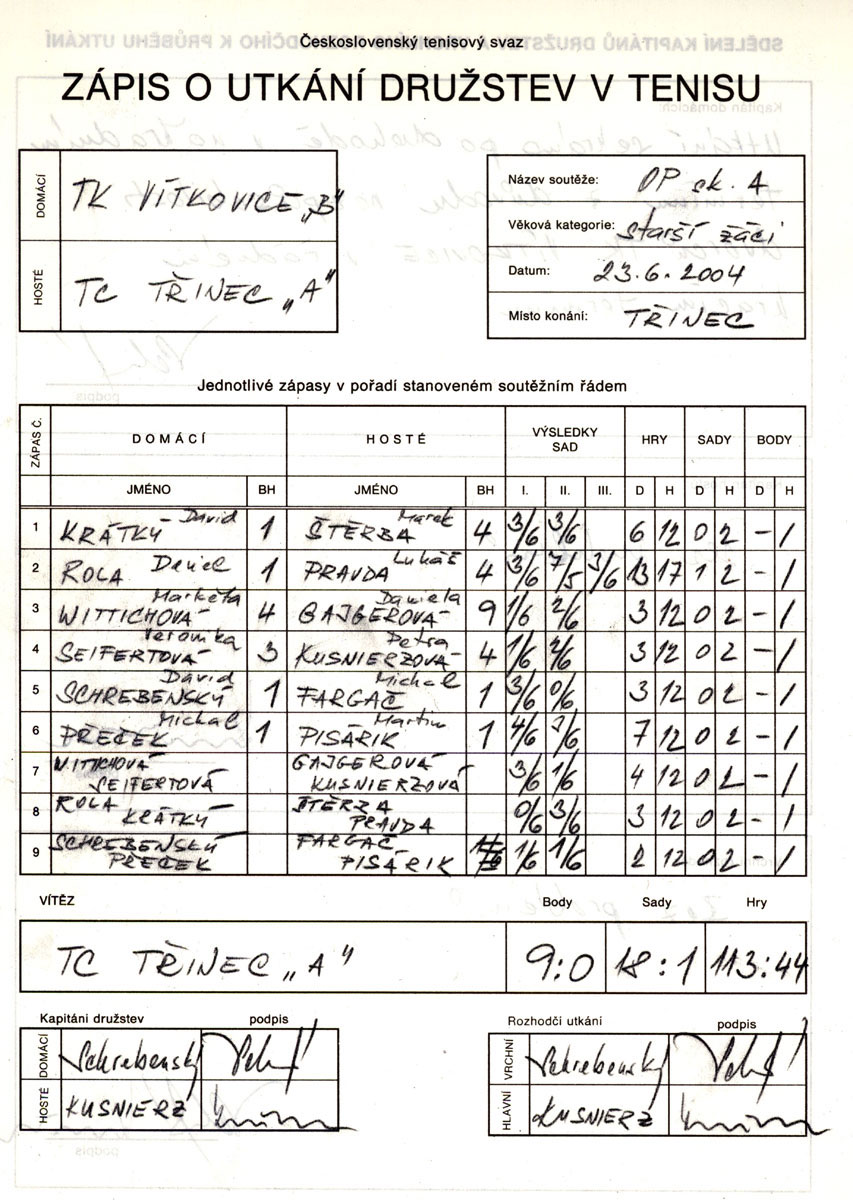 Československý tenisový svaz
ZÁPIS O UTKÁNÍ DRUŽSTEV V TENISU
DOMÁCÍ TK VÍTKOVICE „B"
HOSTÉ TC TŘINEC „A"
Název soutěže: OP sk. A
Věková kategorie: starší žáci
Datum: 23.6.2004
Místo konání: TŘINEC
Jednotlivé zápasy v pořadí stanoveném soutěžním řádem
ZÁPAS Č. DOMÁCÍ HOSTÉ VÝSLEDKY SAD HRY SADY BODY
JMÉNO BH JMÉNO BH I. II. III. D H D H D H
1 KRÁTKÝ David 1 ŠTĚRBA Marek 4 3/6 3/6 6 12 0 2 - 1
2 ROLA Daniel 1 PRAVDA Lukáš 4 3/6 7/5 3/6 13 17 1 2 - 1
3 WITTICHOVÁ Markéta 4 GAJGEROVÁ Daniela 9 1/6 2/6 3 12 0 2 - 1
4 SEIFERTOVÁ Veronika 3 KUSNIERZOVÁ Petra 4 1/6 2/6 3 12 0 2 - 1
5 SCHREBENSKÝ David 1 FARGAČ Michal 1 3/6 0/6 3 12 0 2 - 1
6 PŘEČEK Michal 1 PISÁRIK Martin 1 4/6 3/6 7 12 0 2 - 1
7 WITTICHOVÁ SEIFERTOVÁ GAJGEROVÁ KUSNIERZOVÁ 3/6 1/6 4 12 0 2 - 1
8 ROLA KRÁTKÝ ŠTĚRBA PRAVDA 0/6 3/6 3 12 0 2 - 1
9 SCHREBENSKÝ PŘEČEK FARGAČ PISÁRIK 1/6 1/6 2 12 0 2 - 1
VÍTĚZ Body Sady Hry
TC TŘINEC „A" 9:0 18:1 113:44
Kapitáni družstev podpis
DOMÁCÍ Schrebenský
HOSTÉ KUSNIERZ
Rozhodčí utkání podpis
VRCHNÍ Schrebenský
HLAVNÍ KUSNIERZ